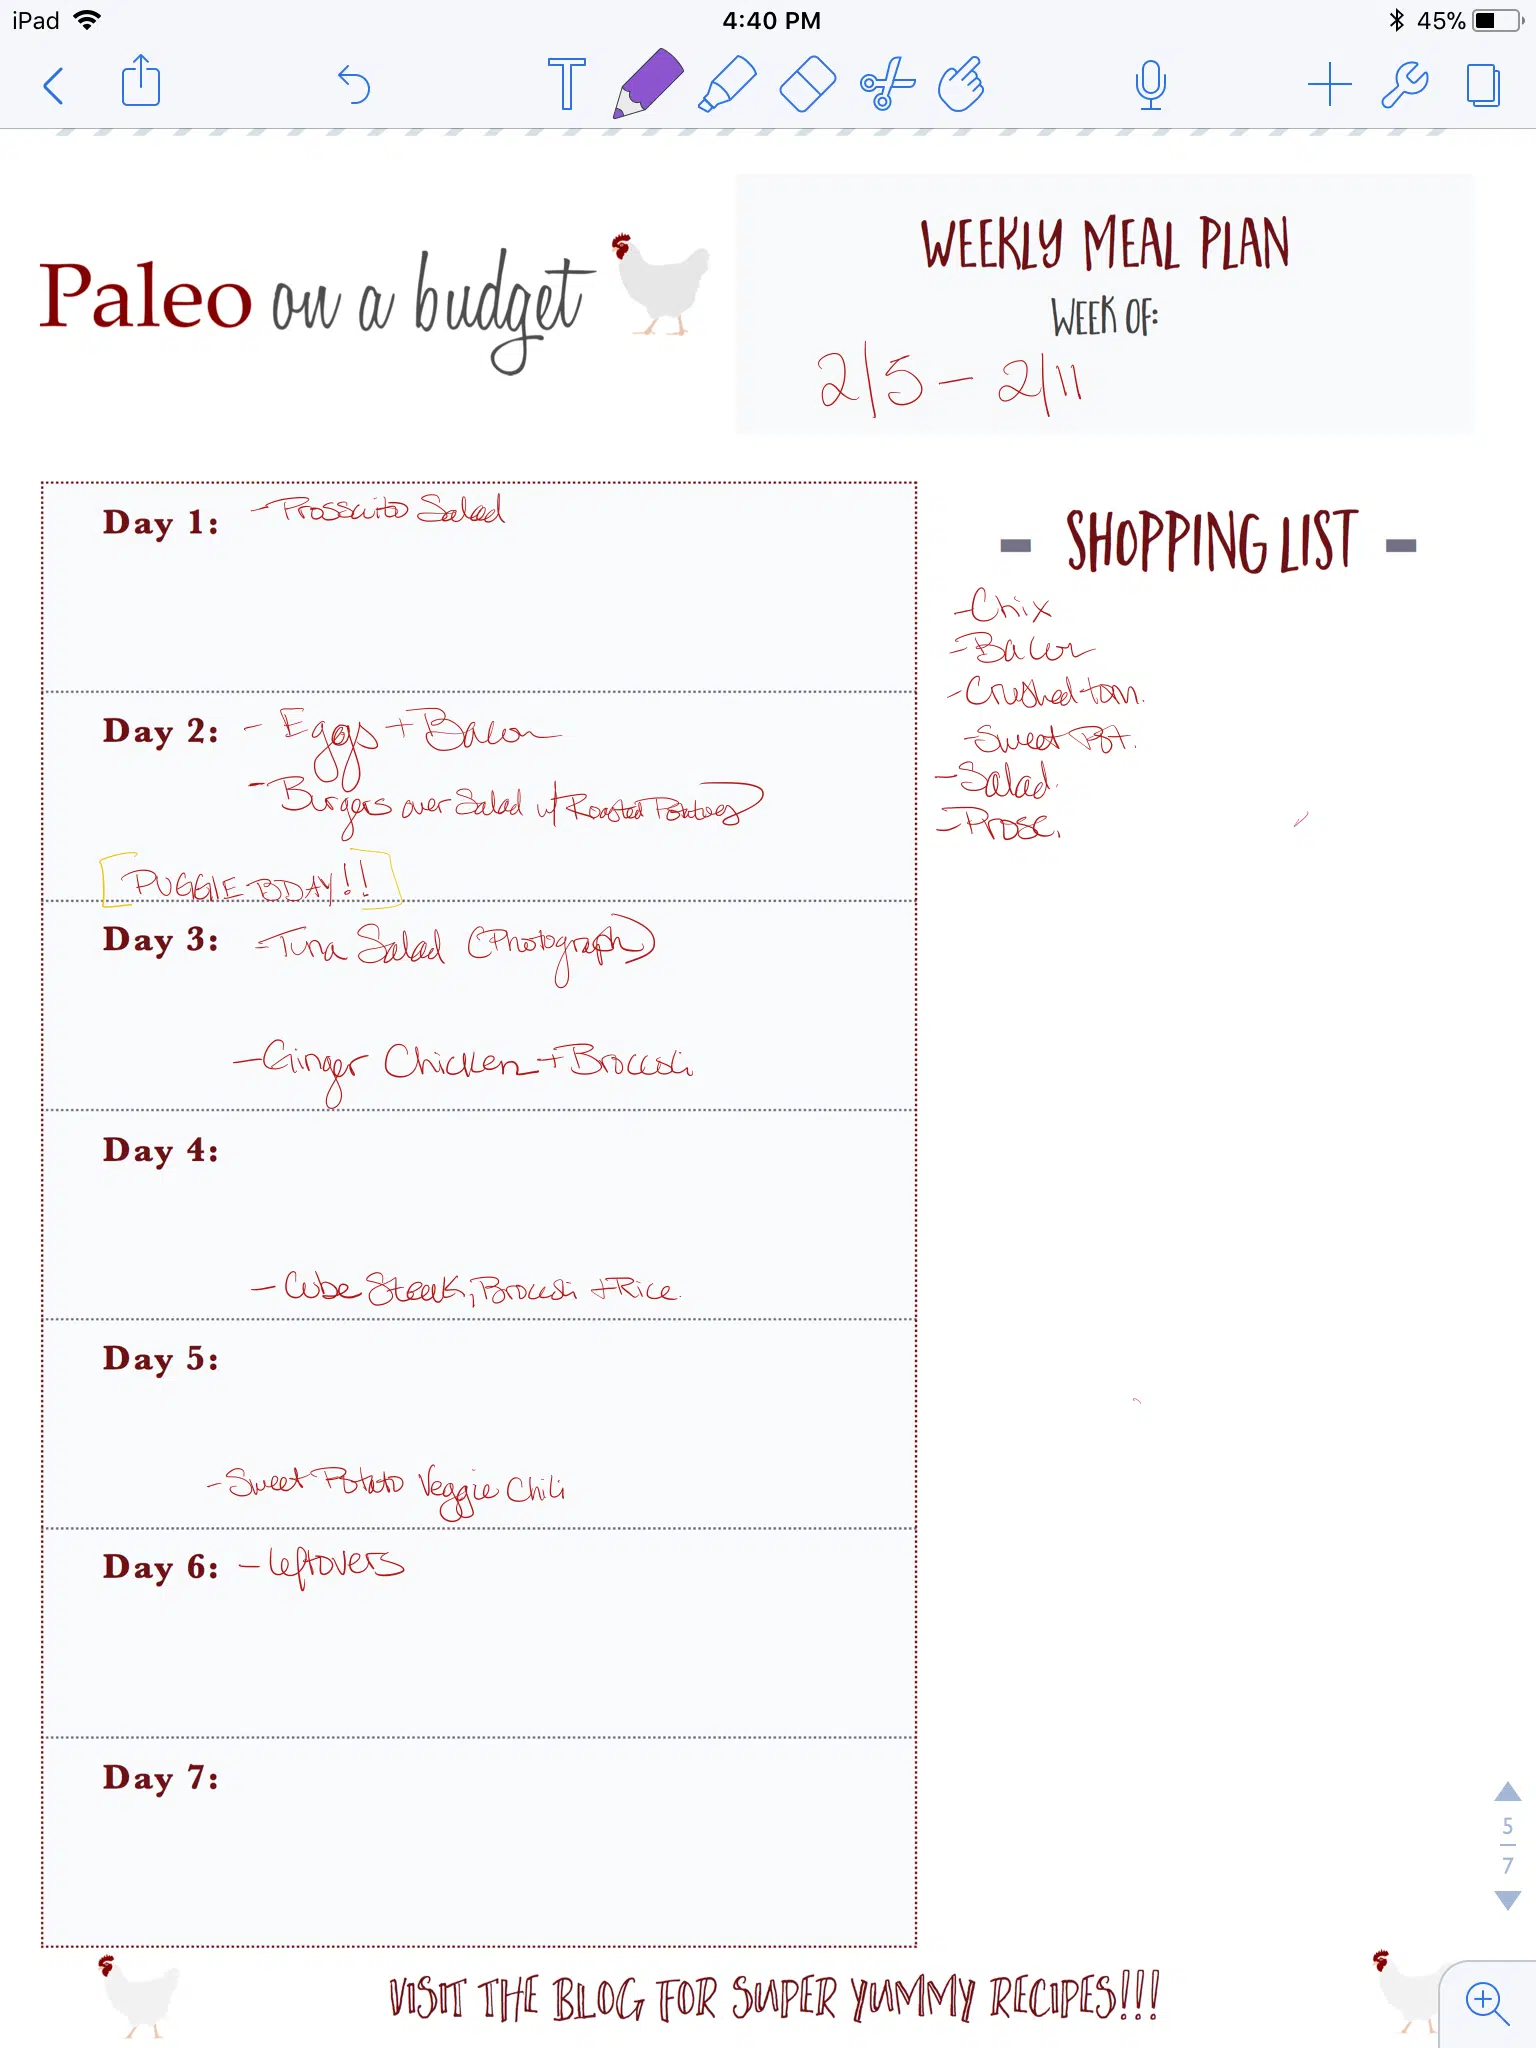 iPad
4:40 PM
45%
Paleo on a budget
WEEKLY MEAL PLAN
WEEK OF:
2/5 - 2/11
Day 1: - Prosscuito Salad
Day 2: - Eggs + Bacon
- Burgers over Salad w/ Roasted Potatoes
PUGGIE BDAY!!
Day 3: - Tuna Salad (Photograph)
- Ginger Chicken + Broccoli
Day 4:
- Cube Steak, Broccoli + Rice.
Day 5:
- Sweet Potato Veggie Chili
Day 6: - leftovers
Day 7:
- SHOPPING LIST -
- Chix
- Bacon
- Crushed tom.
- Sweet Pot.
- Salad.
- Prosc.
5
7
VISIT THE BLOG FOR SUPER YUMMY RECIPES!!!